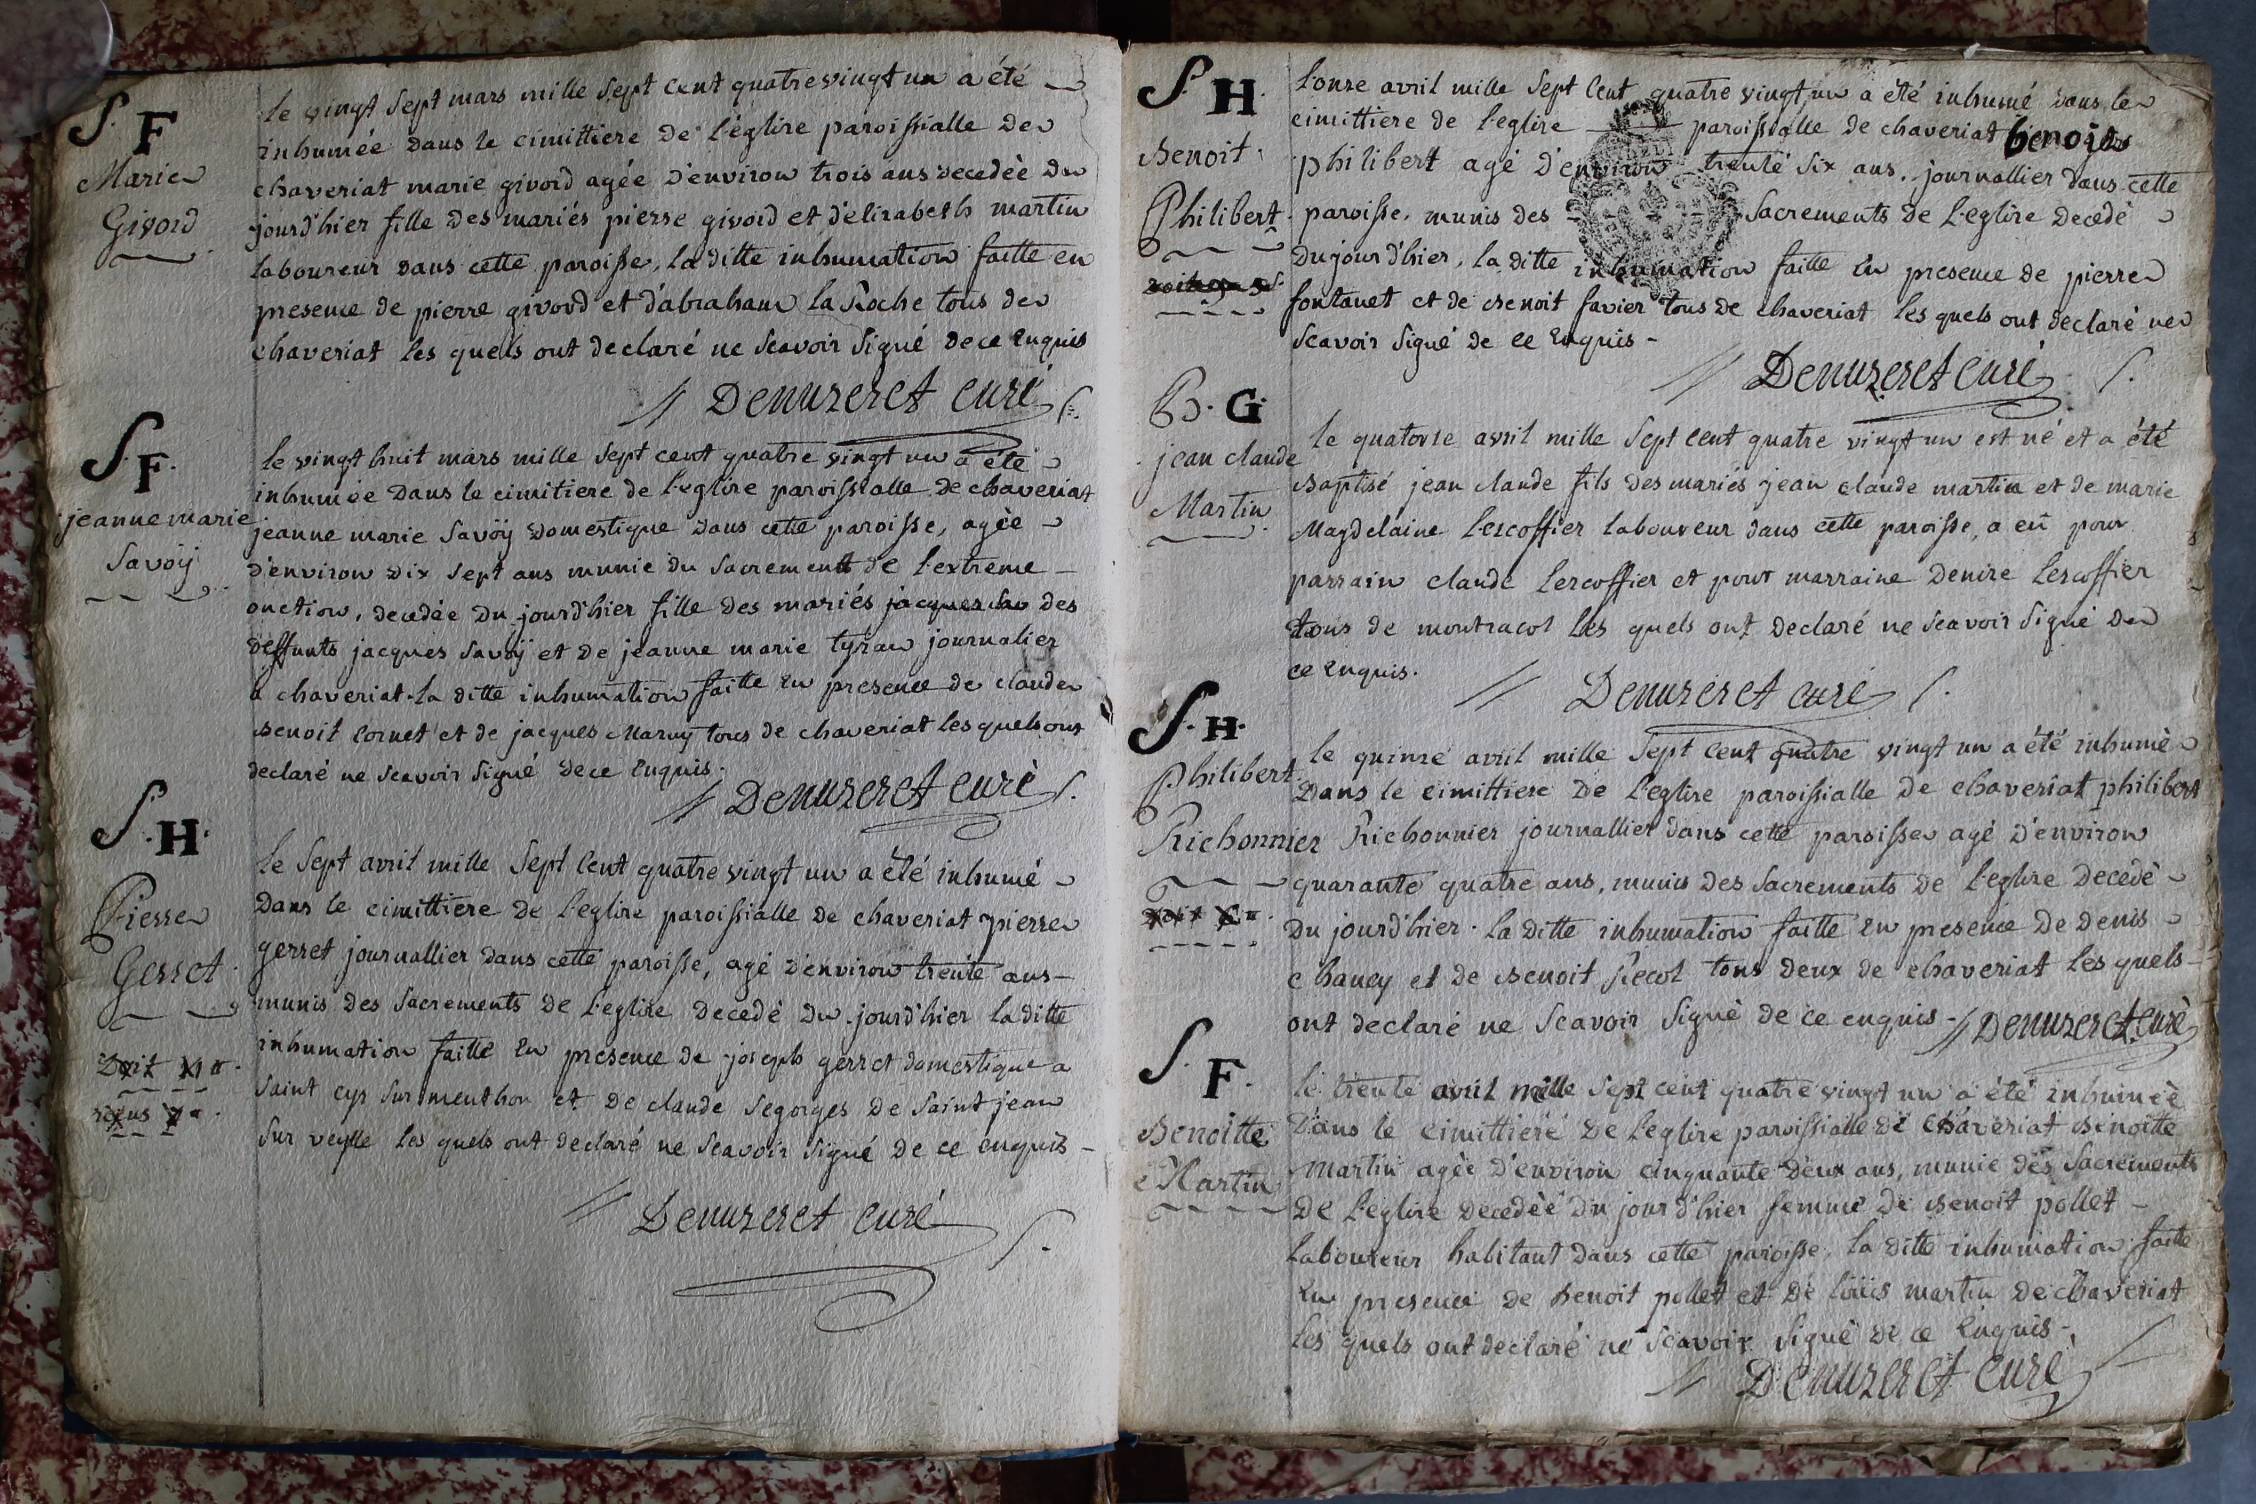 S. F
Marie
Givord
le vingt sept mars mille sept cent quatre vingt un a été
inhumée dans le cimittiere de l'églire paroissialle de
chaveriat marie givord agée d'environ trois ans decedèe du
jourd'hier fille des mariés pierre givord et d'elirabeth martin
laboureur dans cette paroisse, la ditte inhumation faitte en
presence de pierre givord et d'abraham la Roche tous de
chaveriat les quels ont declaré ne scavoir signé de ce enquis
Denureret curé
S. F.
jeanne marie
Savoÿ
le vingt huit mars mille sept cent quatre vingt un a été
inhumée dans le cimitiere de l'eglire paroissialle de chaveriat
jeanne marie Savoÿ domestique dans cette paroisse, agèe
d'environ dix sept ans munie du sacrement de l'extreme
onction, decedèe du jourd'hier fille des mariés jacques sav des
deffunts jacques Savoÿ et de jeanne marie tyran journalier
a chaveriat. la ditte inhumation faitte en presence de claude
Benoit Cornet et de jacques Maruy tous de chaveriat les quels ont
declaré ne scavoir signé de ce enquis.
Denureret curè
S. H.
Pierre
Gerret
le sept avril mille sept cent quatre vingt un a été inhumé
dans le cimittiere de l'eglire paroissialle de chaveriat pierre
gerret journallier dans cette paroisse, agé d'environ trente ans
munis des sacrements de l'eglire decedè du jourd'hier la ditte
inhumation faitte en presence de joseph gerret domestique a
saint cyr sur menthon et de claude segorges de saint jean
sur veylle les quels ont declaré ne scavoir signé de ce enquis
Doit
Denureret curé
S. H.
Benoit
Philibert
l'onre avril mille sept cent quatre vingt un a été inhumé dans le
cimittiere de l'eglire paroissialle de chaveriat benoit
philibert agé d'environ trente six ans, journallier dans cette
paroisse, munis des sacrements de l'eglire decedè
dujourd'hier, la ditte inhumation faitte en presence de pierre
fontanet et de Benoit favier tous de chaveriat les quels ont declaré ne
scavoir signé de ce enquis -
Denureret curé
B. G.
jean claude
Martin
le quatorre avril mille sept cent quatre vingt un est né et a été
Baptisé jean claude fils des mariés jean claude martin et de marie
Magdelaine Lescoffier laboureur dans cette paroisse, a eû pour
parrain claude Lescoffier et pour marraine Denire Lescoffier
tous de montracol les quels ont declaré ne scavoir signé de
ce enquis.
Denureret curé
S. H.
Philibert
Richonnier
le quinre avril mille sept cent quatre vingt un a été inhumè
Dans le cimittiere de l'eglire paroissialle de chaveriat philibert
Richonnier journallier dans cette paroisse agé d'environ
quarante quatre ans, munis des sacrements de l'eglire decedè
du jourd'hier. la ditte inhumation faitte en presence de Denis
chaney et de Benoit Recol tous deux de chaveriat les quels
ont declaré ne scavoir signé de ce enquis - Denureret curè
S. F.
Benoitte
Martin
le trente avril mille sept cent quatre vingt un a été inhumèe
Dans le cimittiere de l'eglire paroissialle de chaveriat Benoitte
Martin agèe d'environ cinquante deux ans, munie des sacrements
de l'eglire decedèe du jourd'hier femme de Benoit pollet -
laboureur habitant dans cette paroisse, la ditte inhumation faitte
en presence de Benoit pollet et de loüis martin de chaveriat
les quels ont declaré ne scavoir signé de ce enquis -
Denureret curé